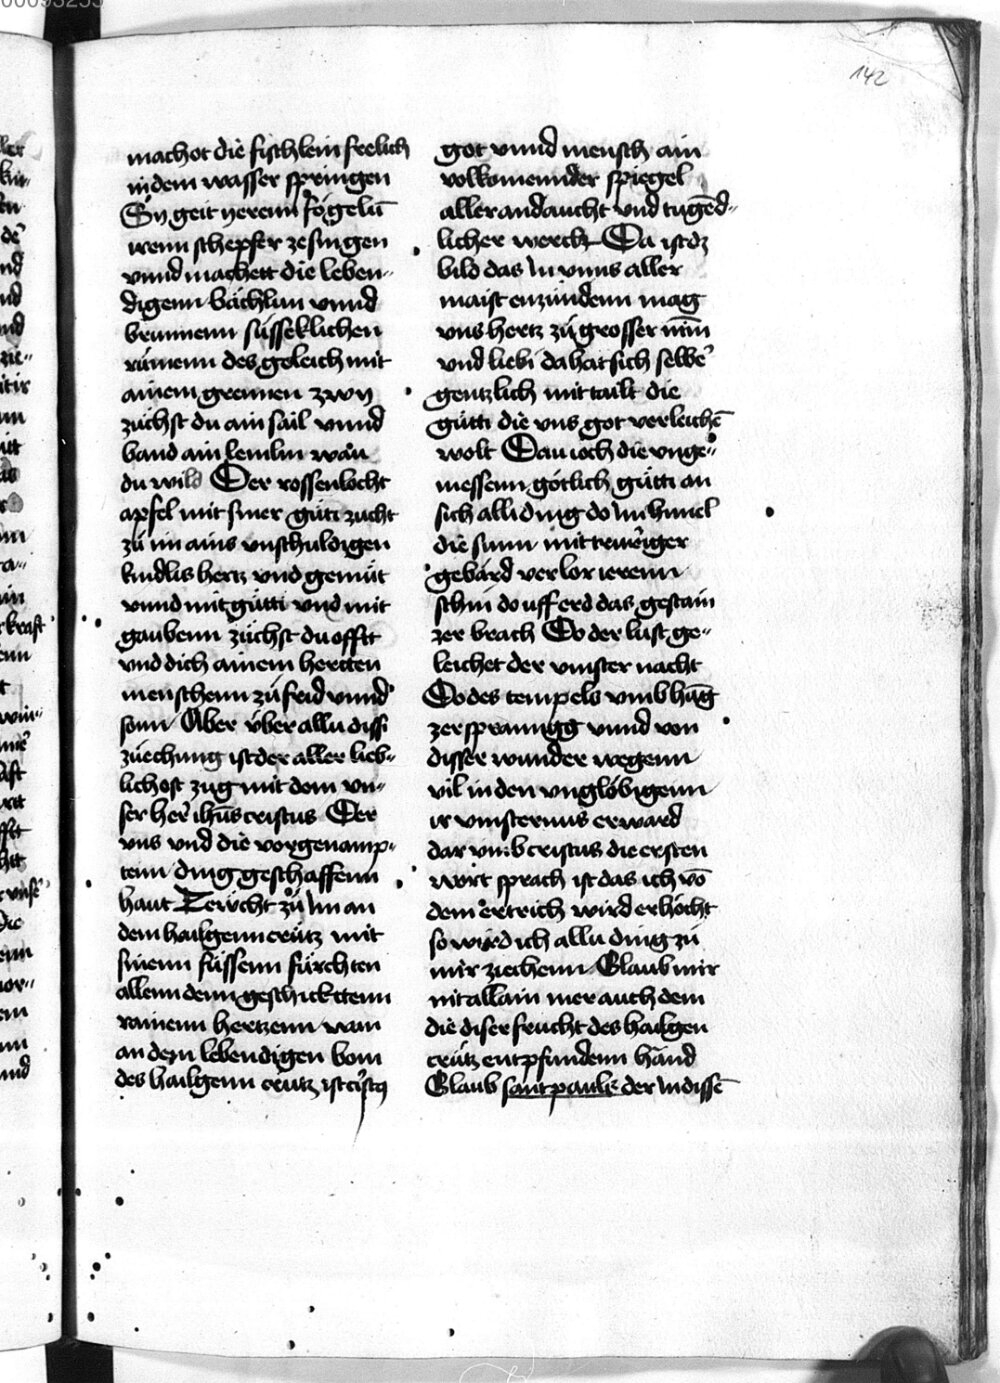 142
machot die fischlein frelich
in dem wasser springen
Sy geit yerenn fögelū
irenn schepfer ze singen
vnnd machett die leben-
digenn bächlun vnnd
brunnenn süsseklichen
rünenn des geleich mit
ainem grennen zwy
züchst du ain säll vnnd
band ain lemlin wän
du wild Der rossenlocht
apfel mit siner gütt zucht
zü im ains vnschuldigen
kindlis hertz vnd gemüt
vnnd mit gütti vnd mit
gaubenn züchst du offtt
vnd dich ainem hertten
menschenn zü frid vnnd
son Aber über allu diss
züechung ist der aller lieb-
lichost zug mit dem vn-
ser her ihūs cristus Der
vns vnd die vorgenamp-
tenn ding geschaffenn
haut Zerücht zü im an
dem hailgenn crütz mit
sinenn füssenn fürchten
allenn denn geschickttenn
rainenn hertzenn wan
an dem lebendigen bom
des hailgenn crütz ist cristus
got vnnd mensch ain
volkomennder spiegel
aller andaucht vnd tugēd-
licher werck Da ist dz
bild das in vnns aller
maist enzündenn mag
vns hertz zü grosser min
vnd liebi da hat sich selbē
gentzlich mit tailt die
gütti die vns got verleichē
wolt Dau ioch die vnge-
messenn götlich gütti an
sich alli ding do im himel
die sunn mit truriger
gebärd verlor ierenn
schin do uff erd das gestain
zer brach Do der lust ge-
leichet der vinster nacht
Do des tempels vmbhāg
zersprannigg vnnd von
disser wunder wegenn
vil in den vnglöbigenn
ir vinsternus erward
dar vmb cristus die ersten
wort sprach ist das ich vō
dem ertrich wird erhöcht
so wird ich allu ding zü
mir ziechenn Glaub mir
nit allain mer auch dem
die diser frucht des hailgen
crütz entpfundenn händ
Glaub sant paulε der in dissē